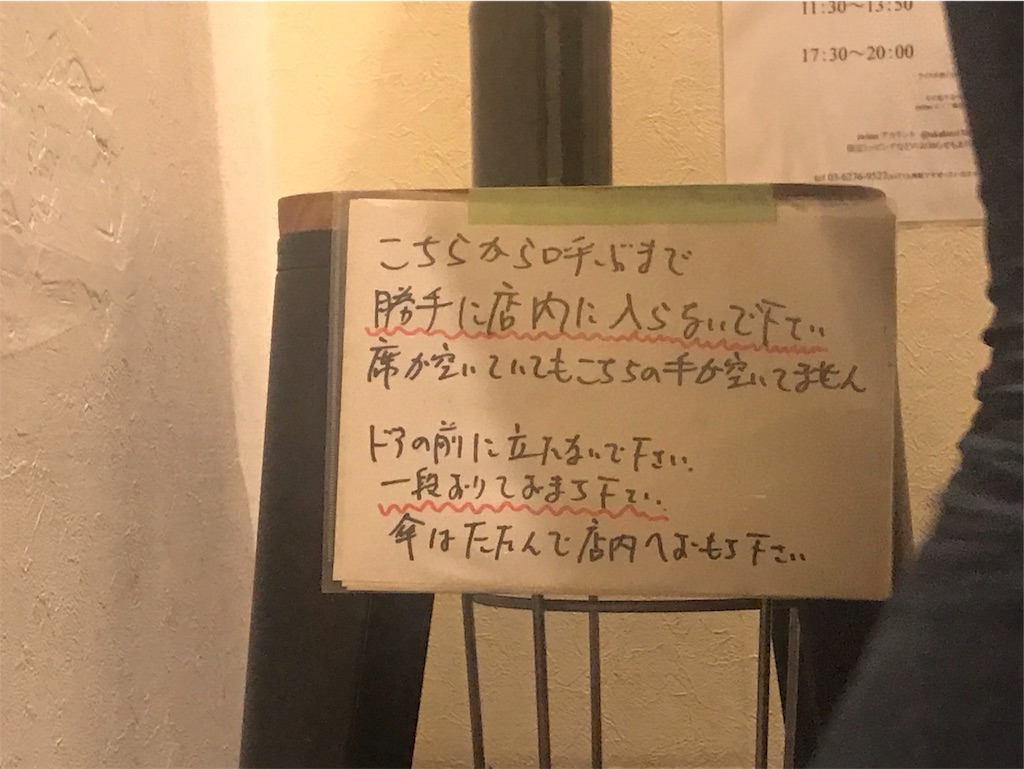 11:30～13:50
17:30～20:00
twitter アカウント
tel 03-6276-9527
こちらから呼ぶまで
勝手に店内に入らないで下さい
席が空いていてもこちらの手が空いてません
ドアの前に立たないで下さい.
一段おりておまち下さい.
傘はたたんで店内へおもち下さい